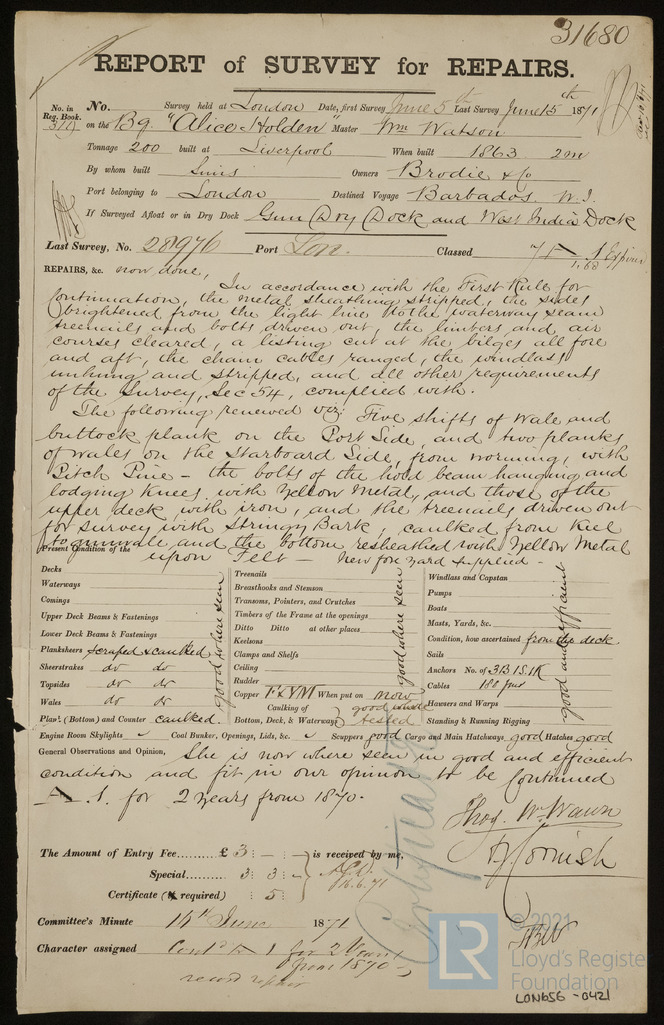 31680
REPORT of SURVEY for REPAIRS.
No. in Reg. Book.
No. Survey held at London Date, first Survey June 5th Last Survey June 15th 1871
on the Bg. "Alice Holden" Master Wm Watson
Tonnage 200 built at Liverpool When built 1863 2m
By whom built Owners Brodie & Co
Port belonging to London Destined Voyage Barbados W.I.
If Surveyed Afloat or in Dry Dock Gun Dry Dock and West India Dock
Last Survey, No. 28976 Port Lon. Classed 7 A 1 Expired
1.68
REPAIRS, &c. now done,
In accordance with the First Rule for
Continuation, the metal sheathing stripped, the sides
brightened from the light line to the waterway seam
treenails and bolts driven out, the limbers and air
courses cleared, a listing cut at the bilges all fore
and aft, the chain cables ranged, the windlass
unhung and stripped, and all other requirements
of the Survey, Sec 54, complied with.
The following renewed viz: Five shifts of Wale and
buttock plank on the Port Side, and two planks
of Wales on the Starboard Side, from worming, with
Pitch Pine – the bolts of the hold beam hanging and
lodging knees with Yellow Metal, and those of the
upper deck with iron, and the treenails driven out
for survey with Stringy Bark, caulked from Keel
to gunwale and the bottom resheathed with Yellow Metal
upon Felt – New fore yard supplied –
Present Condition of the
Decks
Waterways
Comings
Upper Deck Beams & Fastenings
Lower Deck Beams & Fastenings
Planksheers scraped & caulked
Sheerstrakes do do
Topsides do do
Wales do do
Plank (Bottom) and Counter caulked.
good where seen
Treenails
Breasthooks and Stemson
Transoms, Pointers, and Crutches
Timbers of the Frame at the openings
Ditto Ditto at other places
Keelsons
Clamps and Shelfs
Ceiling
Rudder
Copper F & YM When put on now
Caulking of Bottom, Deck, & Waterways good where tested
good where seen
Windlass and Capstan
Pumps
Boats
Masts, Yards, &c.
Condition, how ascertained from the deck
Sails
Anchors No. of 3B 1S. 1K
Cables 180
Hawsers and Warps
Standing & Running Rigging
good and efficient
Engine Room Skylights Coal Bunker, Openings, Lids, &c. Scuppers good Cargo and Main Hatchways good Hatches good
General Observations and Opinion, She is now where seen in good and efficient
condition and fit in our opinion to be Continued
A. 1. for 2 years from 1870.
Thos. Wm Wawn
Cornish
The Amount of Entry Fee £ 3 : – : – is received by me,
Special 3 : 3 : –
16.6.71
Certificate (if required) : 5 :
Certificate
Committee's Minute 16th June 1871
Character assigned Contd A 1 for 2 Years
from 1870 –
record repair
LR
© 2021
Lloyd's Register
Foundation
LON656 - 0421